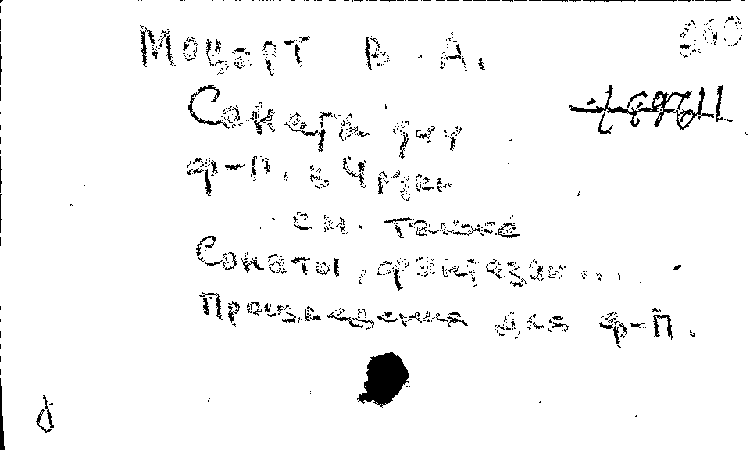 Моцарт В. А.
Сонаты для
ф-п. в 4 руки
см. также
Сонаты, фантазии...
Произведения для ф-п.